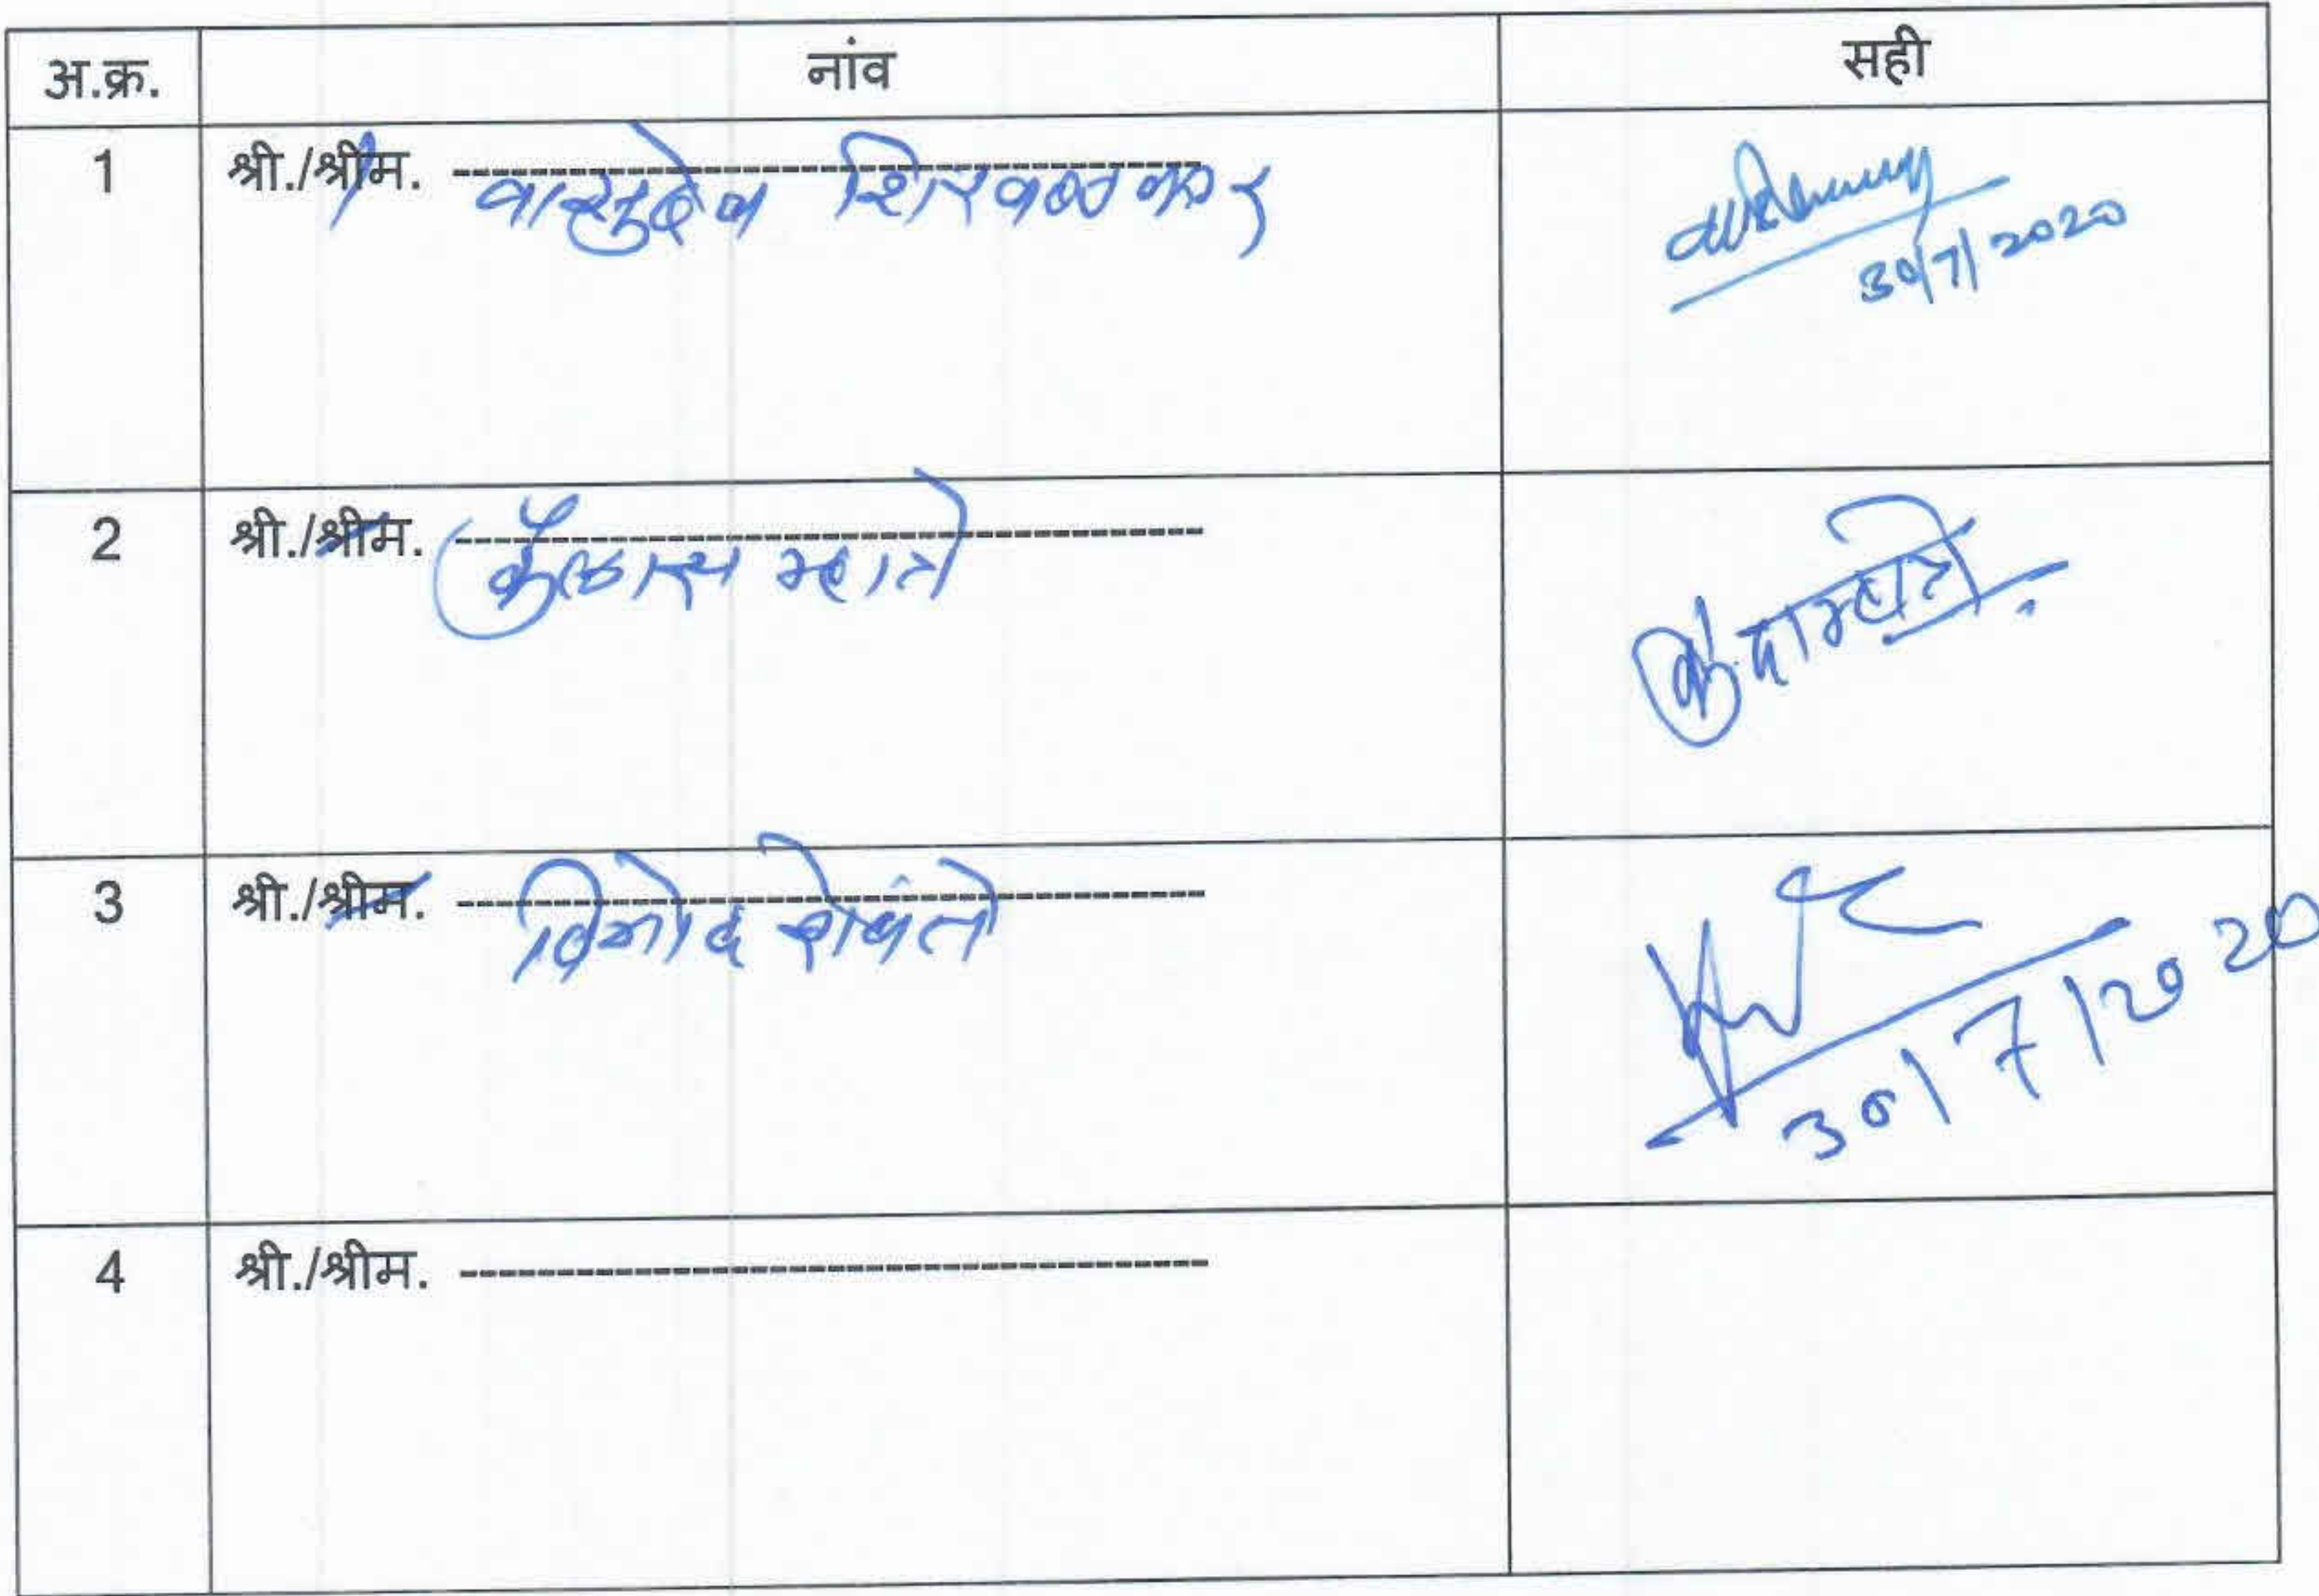 अ.क्र. नांव सही
1 श्री./श्रीम. वासुदेव शिरवळकर
30/7/2020
2 श्री./श्रीम. कैलास म्हात्रे
म्हात्रे
3 श्री./श्रीम. विनोद शेवंते
30/7/2020
4 श्री./श्रीम.